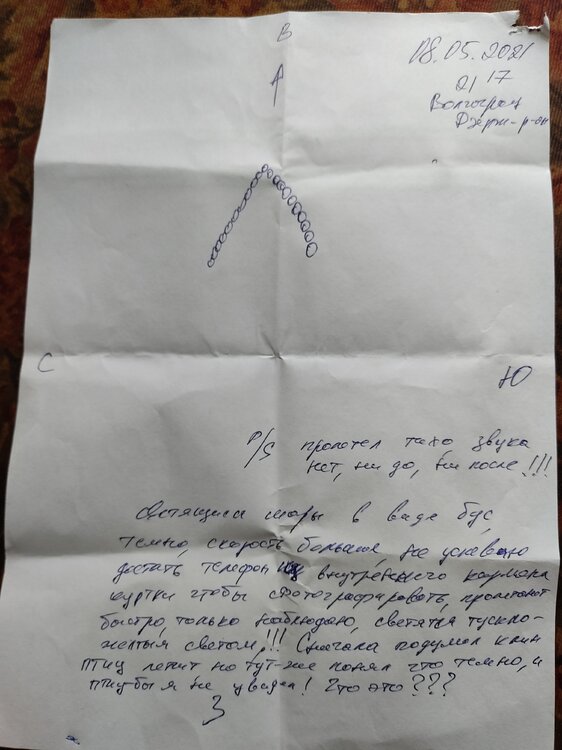 В
08.05.2021
21 17
Волгоград
Дзерж-р-он
С
Ю
P/S пролетел тихо, звука
нет, ни до, ни после!!!
светящиеся шары в виде бус,
темно, скорость большая, не успеваю
достать телефон из внутреннего кармана
куртки чтобы сфотографировать, пролетают
быстро, только наблюдаю, светятся тускло-
желтым светом,!!! Сначала подумал клин
птиц летит но тут-же понял что темно, и
птиц бы я не увидел! Что это???
З